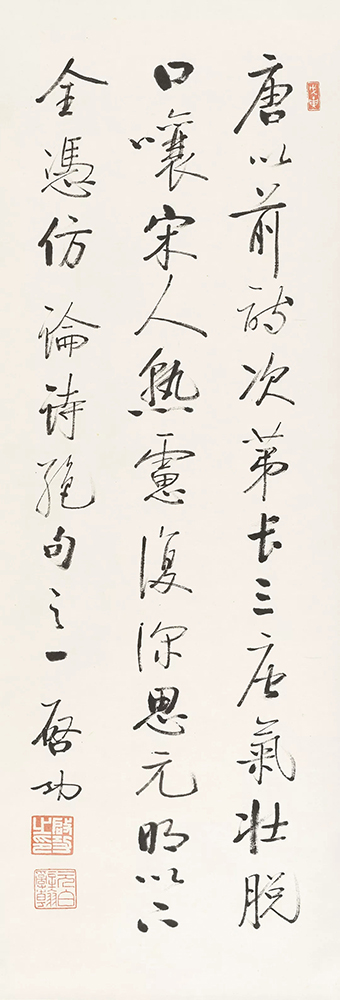 唐以前詩次第長三唐氣壯脫
口嚷宋人熟慮復深思元明以下
全憑仿 論詩絕句之一 啓功
啟功之印